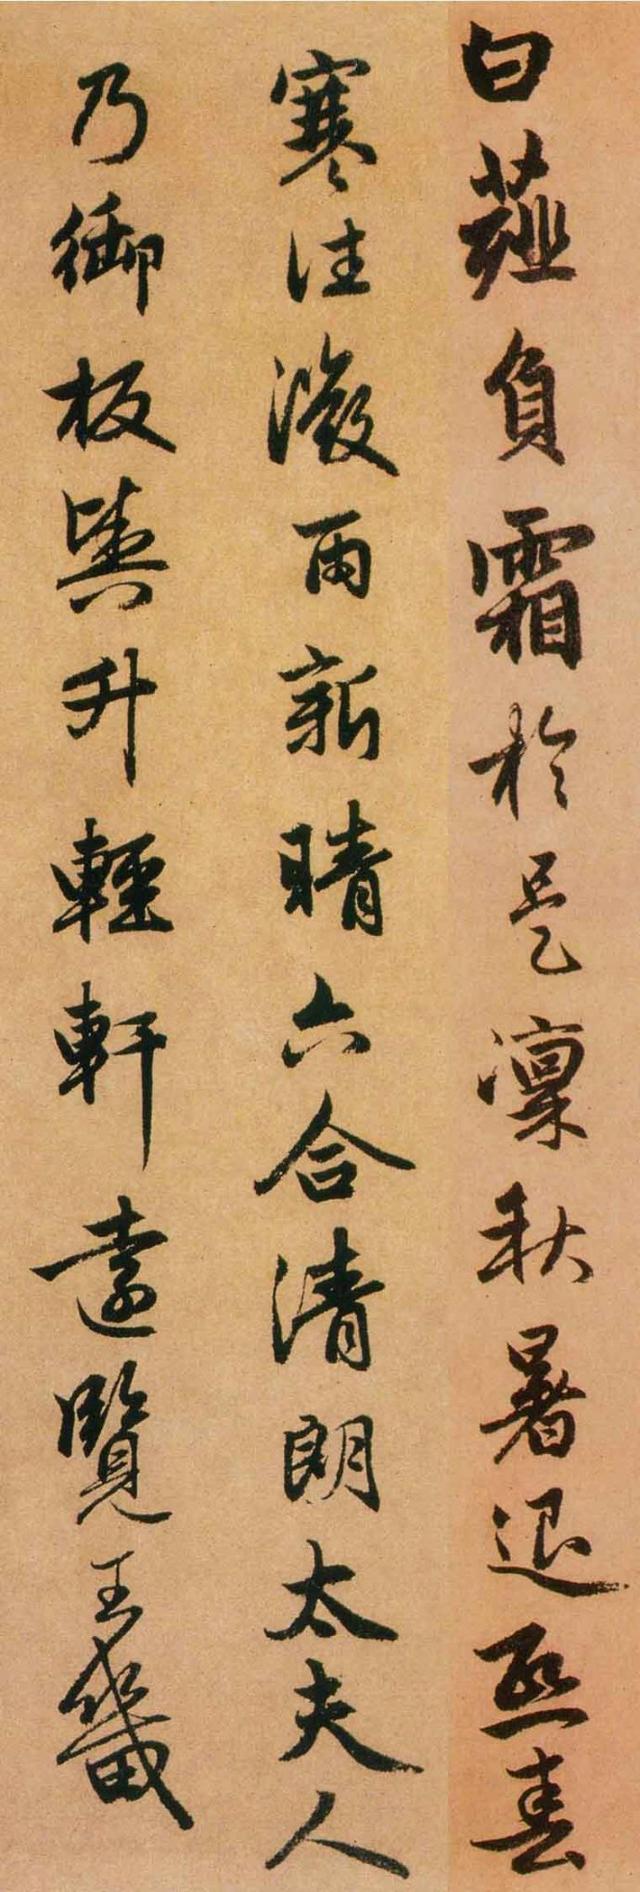 白薤負霜於是凜秋暑退熙春
寒往微雨新晴六合清朗太夫人
乃御板輿升輕軒遠覽王畿